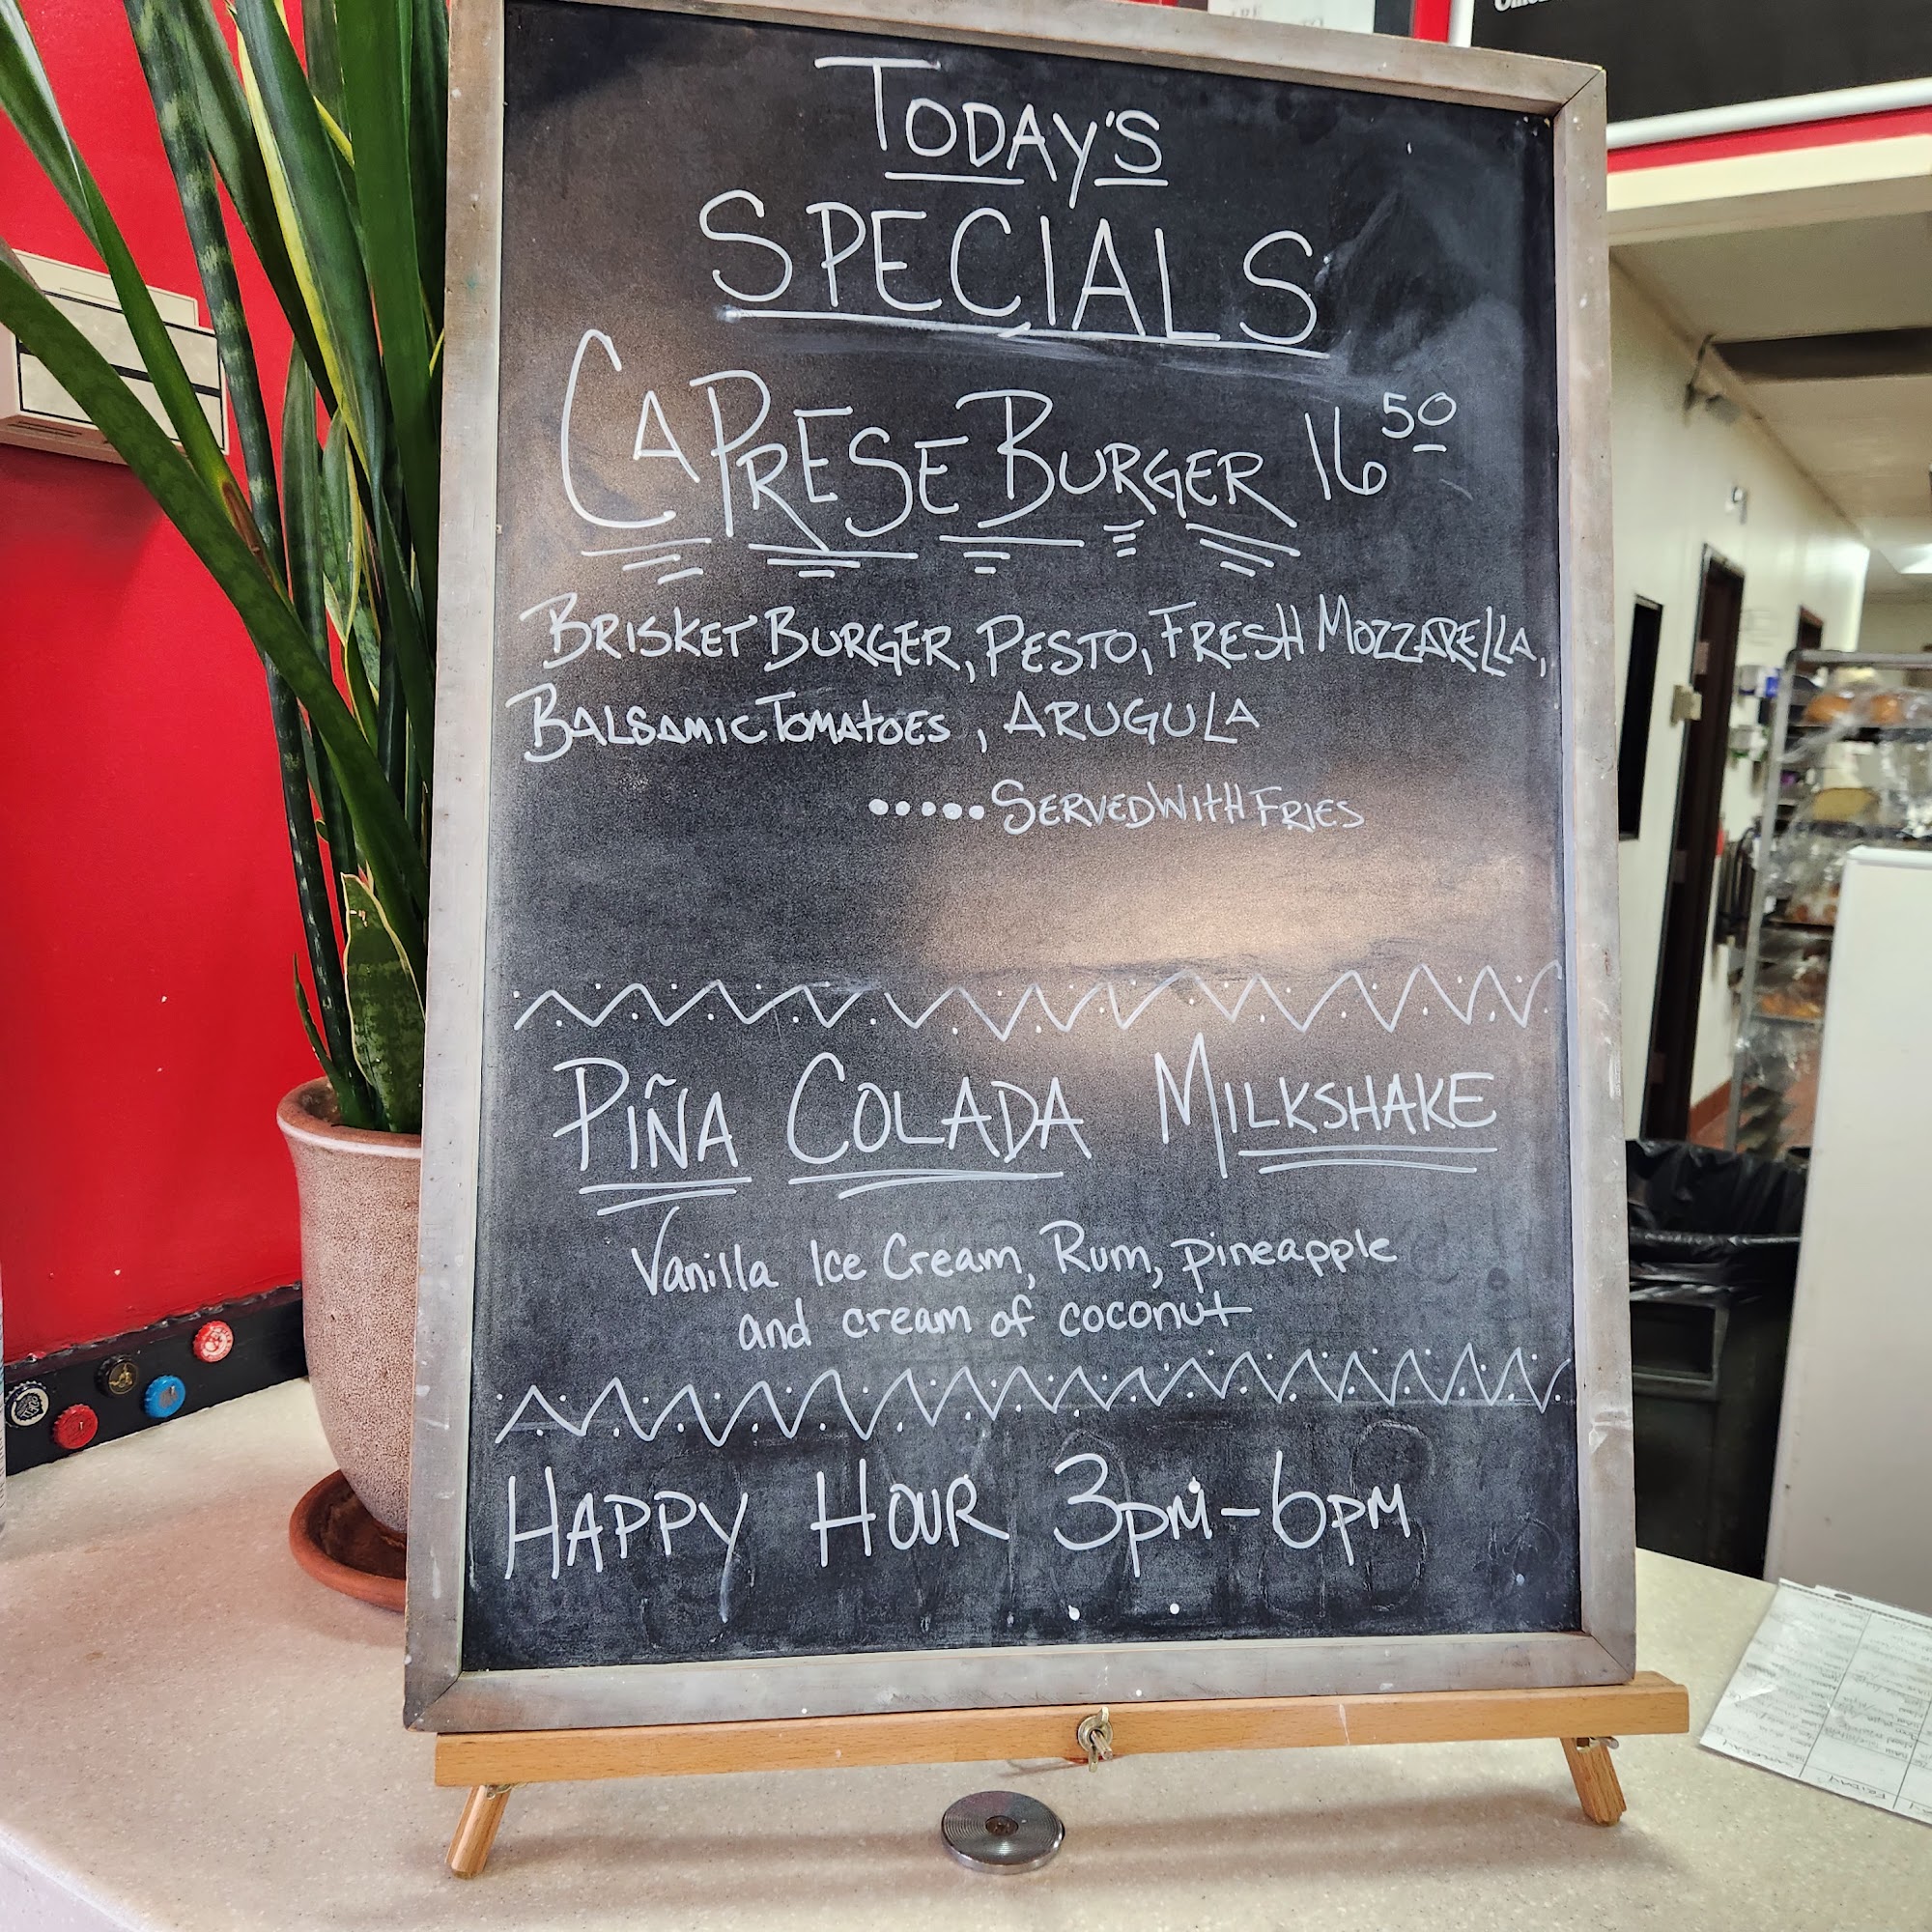 TODAY'S
SPECIALS
CAPRESE BURGER 16 50
BRISKET BURGER, PESTO, FRESH MOZZARELLA,
BALSAMIC TOMATOES, ARUGULA
.....SERVED WITH FRIES
PIÑA COLADA MILKSHAKE
Vanilla Ice Cream, Rum, pineapple
and cream of coconut
HAPPY HOUR 3PM-6PM